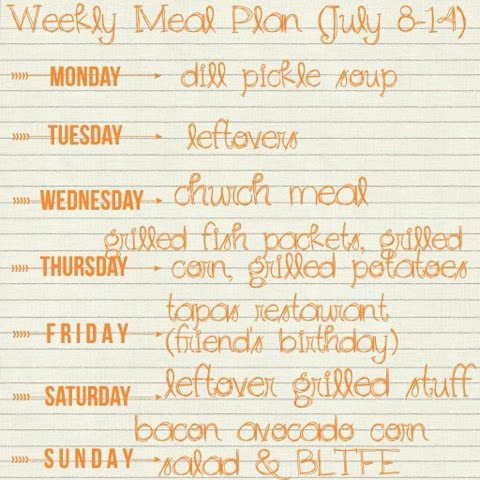 Weekly Meal Plan (July 8-14)
MONDAY dill pickle soup
TUESDAY leftovers
WEDNESDAY church meal
grilled fish packets, grilled
THURSDAY corn, grilled potatoes
tapas restaurant
FRIDAY (friend's birthday)
SATURDAY leftover grilled stuff
bacon avocado corn
SUNDAY salad & BLTFE